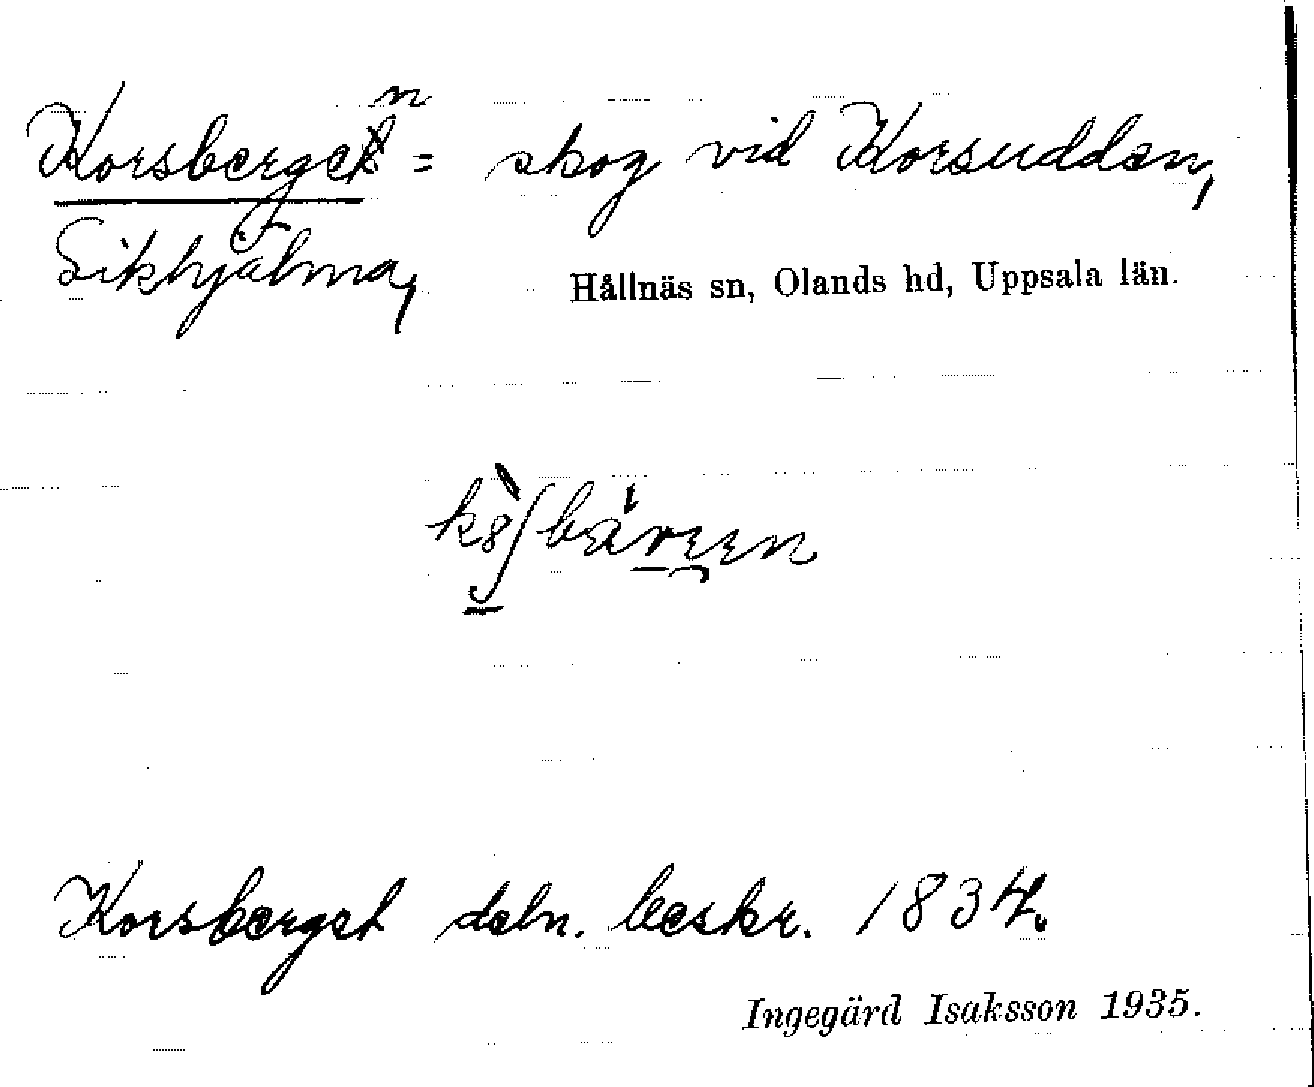 Korsbergen = skog vid Korsudden,
Sikhjälma, Hållnäs sn, Olands hd, Uppsala län.
Korsberget deln. beskr. 1834.
Ingegärd Isaksson 1935.